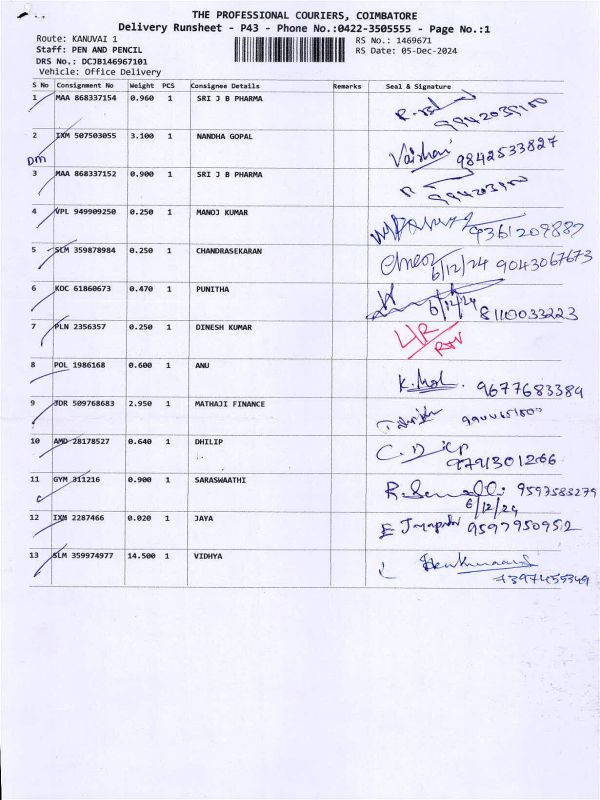 THE PROFESSIONAL COURIERS, COIMBATORE
Delivery Runsheet - P43 - Phone No.:0422-3505555 - Page No.:1
Route: KANUVAI 1 RS No.: 1469671
Staff: PEN AND PENCIL RS Date: 05-Dec-2024
DRS No.: DCJB146967101
Vehicle: Office Delivery
S No Consignment No Weight PCS Consignee Details Remarks Seal & Signature
1 MAA 868337154 0.960 1 SRI J B PHARMA
2 IXM 507503055 3.100 1 NANDHA GOPAL Vaishnavi 9842533827
Dm
3 MAA 868337152 0.900 1 SRI J B PHARMA
4 VPL 949909250 0.250 1 MANOJ KUMAR 9361209887
5 SLM 359878984 0.250 1 CHANDRASEKARAN 6/12/24 9043067673
6 KOC 61860673 0.470 1 PUNITHA 6/12/24 8110033223
7 PLN 2356357 0.250 1 DINESH KUMAR
8 POL 1986168 0.600 1 ANU 9677683384
9 JDR 509768683 2.950 1 MATHAJI FINANCE
10 AMD 28178527 0.640 1 DHILIP 9791301266
11 GYM 311216 0.900 1 SARASWAATHI 9597583279
6/12/24
12 IXM 2287466 0.020 1 JAYA 9597950952
13 SLM 359974977 14.500 1 VIDHYA
7397455349